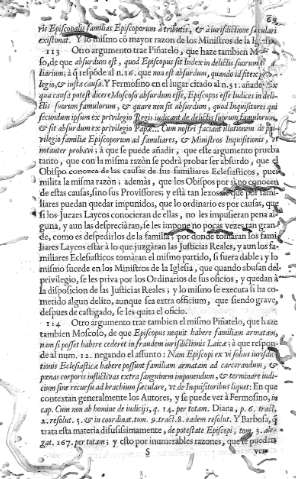 ris Episcopalis familias Episcoporum attributis, & à iurisdictione seculari
existimat. Y lo mismo có mayor razon de los Ministros de la Iglesia.
113 Otro argumento trae Piñatelo, que haze tambien Mos-
so, de que absurdum est, quod Episcopus sit Index in delictis suorum
liarium; à q respõde al n. 16. que non est absurdum, quando id fit ex
legio, & iusta causa. Y Fermosino en el lugar citado al n. 31. añade:
qua causa potest dicere Moscoso absurdum esse, Episcopus esse Iudices in deli-
ctis suorum famulorum, & quare non sit absurdum, quod Inquisitores qui
secundum ipsum ex privilegio Regis iudicant de delictis suorum famulorum,
& sit absurdum ex privilegio Papæ. Cum nostri faciant illationem de
vilegio familiæ Episcoporum ad familiares, & Ministros Inquisitionis,
intantur probare; à que se puede añadir, que este argumento prueba
tanto, que con la misma razón se podrá probar ser absurdo, que el
Obispo conozca de las causas de sus familiares Eclesiasticos, pues
milita la misma razón: ademàs, que los Obispos por si no conocen
de estas causas, sino sus Provisores, y està tan lexos que por fami-
liares puedan quedar impunidos, que lo ordinario es por causas, que
si los Juezes Laycos conocieran de ellas, no les impusieran pena al-
guna, y aun las despreciàran, se les impone no pocas vezes tan gran-
de, como es despedirlos de la familia; por donde tomaron los fami-
liares Laycos estàr à lo que juzgàran las Justicias Reales, y aun los fa-
miliares Eclesiasticos tomàran el mismo partido, si fuera dable; y lo
mismo sucede en los Ministros de la Iglesia, que quando abusan del
privilegio, se les priva por los Ordinarios de sus oficios, y quedan à
la disposicion de las Justicias Reales; y lo mismo se executa si ha co-
metido algun delito, aunque sea extra officium, que siendo grave,
despues de castigado, se les quita el oficio.
114 Otro argumento trae tambien el mismo Piñatelo, que haze
tambien Moscoso, de que Episcopos nequit habere familiam armatam,
nam si posset habere cederet in fraudem iurisdictionis Laicæ: à que respon-
de al num. 12. negando el assunto: Nam Episcopi ex vi solius iurisdic-
tionis Ecclesiasticæ habere possunt familiam armatam ad carcerandum, &
pœnas corporis inflictivas extra sanguinem imponendum, & terminare iudi-
cium sine recursu ad brachium seculare, ut de Inquisitoribus liquet: En que
contextan generalmente los Autores, y se puede ver à Fermosino, in
cap. Cum non ab homine de iudicijs, q. 14. per totam. Diana, p. 6. tract.
2. resolut. 5. & in coordinat. tom. 9. tract. 8. eadem resolut. Y Barbosa,
trata esta materia difusissimamente, de potestate Episcopi tom. 3. ale-
gat. 107. per totam; y esto por inumerables razones, que se pueden
S
ver